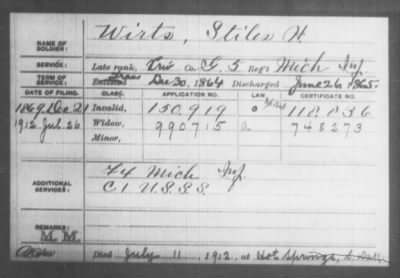 Wirts, Stiles H.
NAME OF SOLDIER:
SERVICE: Late rank, Priv Co. G. 5 Reg't Mich Inf.
TERM OF SERVICE: Enlisted Trans Dec 30, 1864 Discharged June 26, 1865.
DATE OF FILING. CLASS. APPLICATION NO. LAW. CERTIFICATE NO.
1869, Dec 21 Invalid, 150,919 118,836
1912 Jul. 26 Widow, 990715 748273
Minor,
ADDITIONAL SERVICES: F 4 Mich Inf
C 1 U.S.S.S.
REMARKS:
M. M.
Died July 11, 1912, at Hot Springs, S. Dak